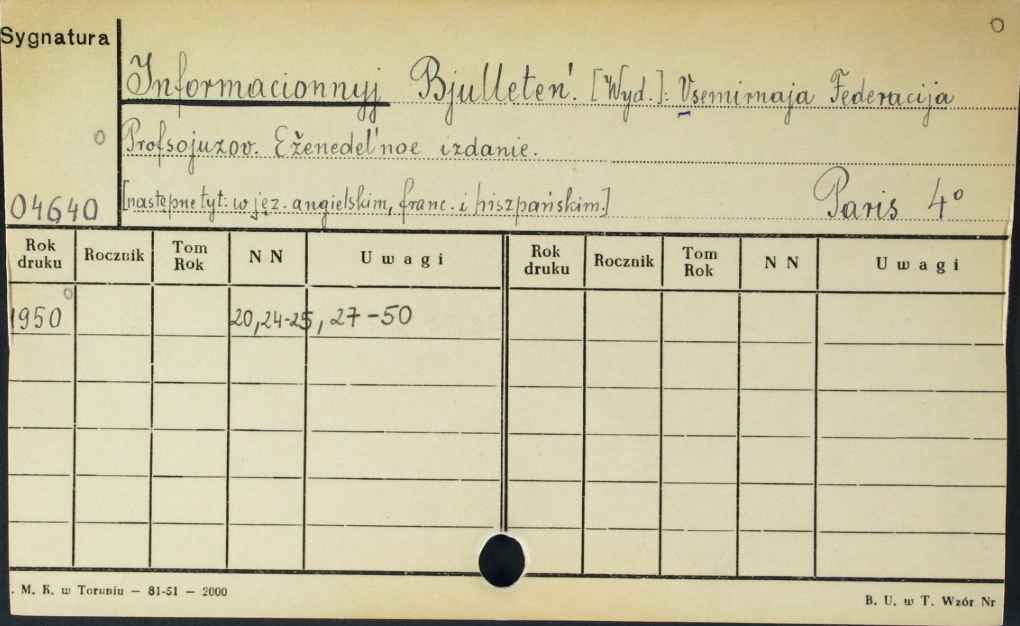 Sygnatura
Informacionnyj Bjulleten'. [Wyd.]: Vsemirnaja Federacija
Profsojuzov. Eženedel'noe izdanie.
04640 [następne tyt: w jęz. angielskim, franc. i hiszpańskim.] Paris 4°
Rok druku Rocznik Tom Rok N N Uwagi Rok druku Rocznik Tom Rok N N Uwagi
1950 20, 24-25, 27-50
. M. K. w Toruniu — 81-51 — 2000
B. U. w T. Wzór Nr